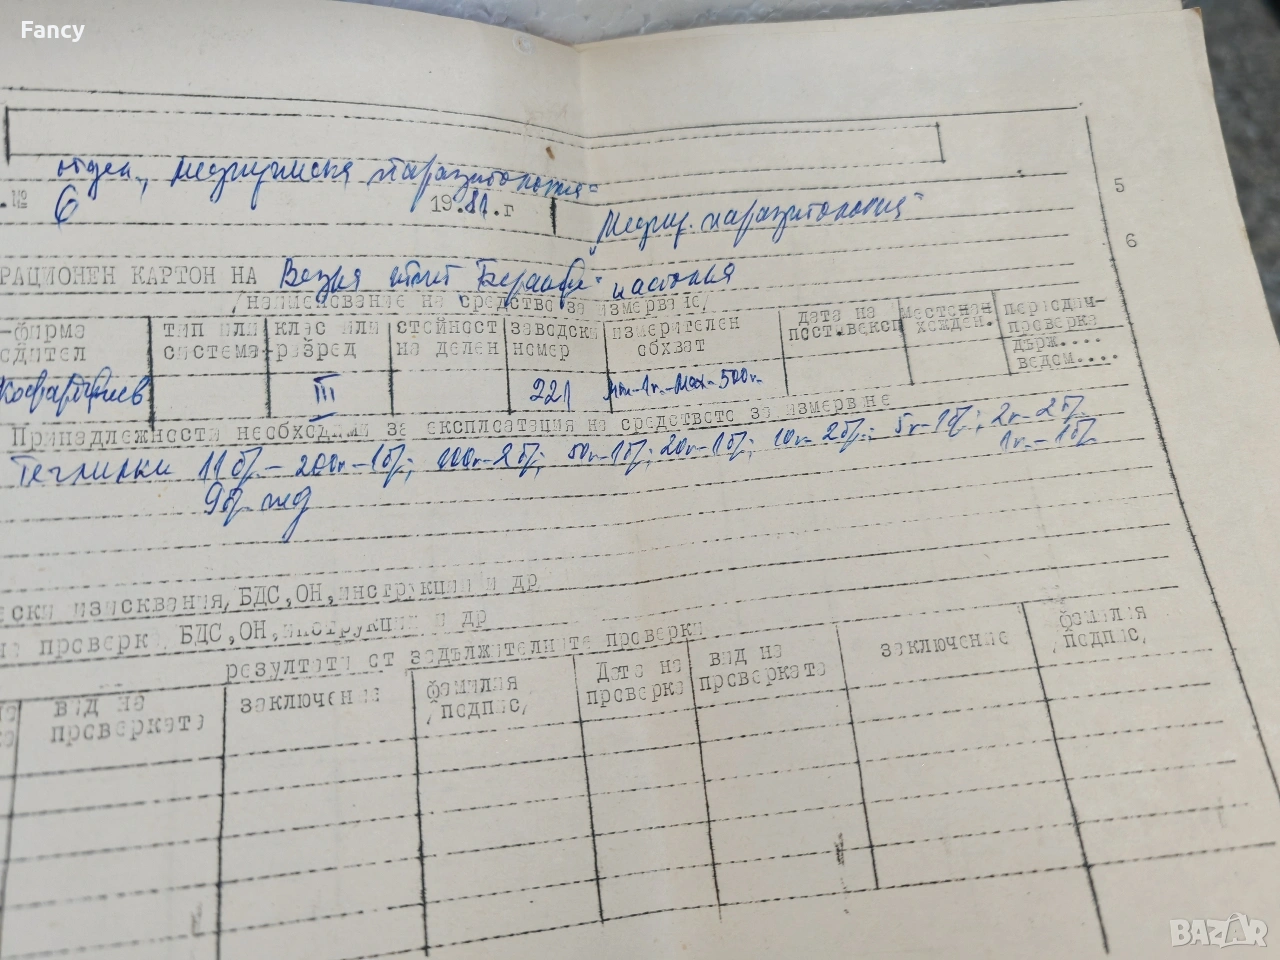 Fancy
отдел „Медицинска паразитология“
.№ 6 19.81.г „Медиц. паразитология“
5
6
РАЦИОНЕН КАРТОН НА Везна тип Беранже настолна
/наименование на средство за измерване/
-фирма тип или клас или стойност заводски измерителен дата на местонах- периодич-
одител система разред на делен номер обхват пост.в експ хожден. проверка
държ.....
ведом.....
III 221 мин-1г.-мах-500г.
Принадлежности необходими за експлоатация на средството за измерване
Теглилки 11бр.-200г-1бр; 100г-2бр; 50г-1бр; 20г-1бр; 10г-2бр; 5г-1бр; 2г-2бр.
1г.-1бр.
9бр.
ески изисквания, БДС, ОН, инструкции и др
на проверка, БДС, ОН, инструкции и др
резултати от задължителните проверки
вид на проверката заключение фамилия /подпис/ Дата на проверка вид на проверката заключение фамилия /подпис/
BAZAR